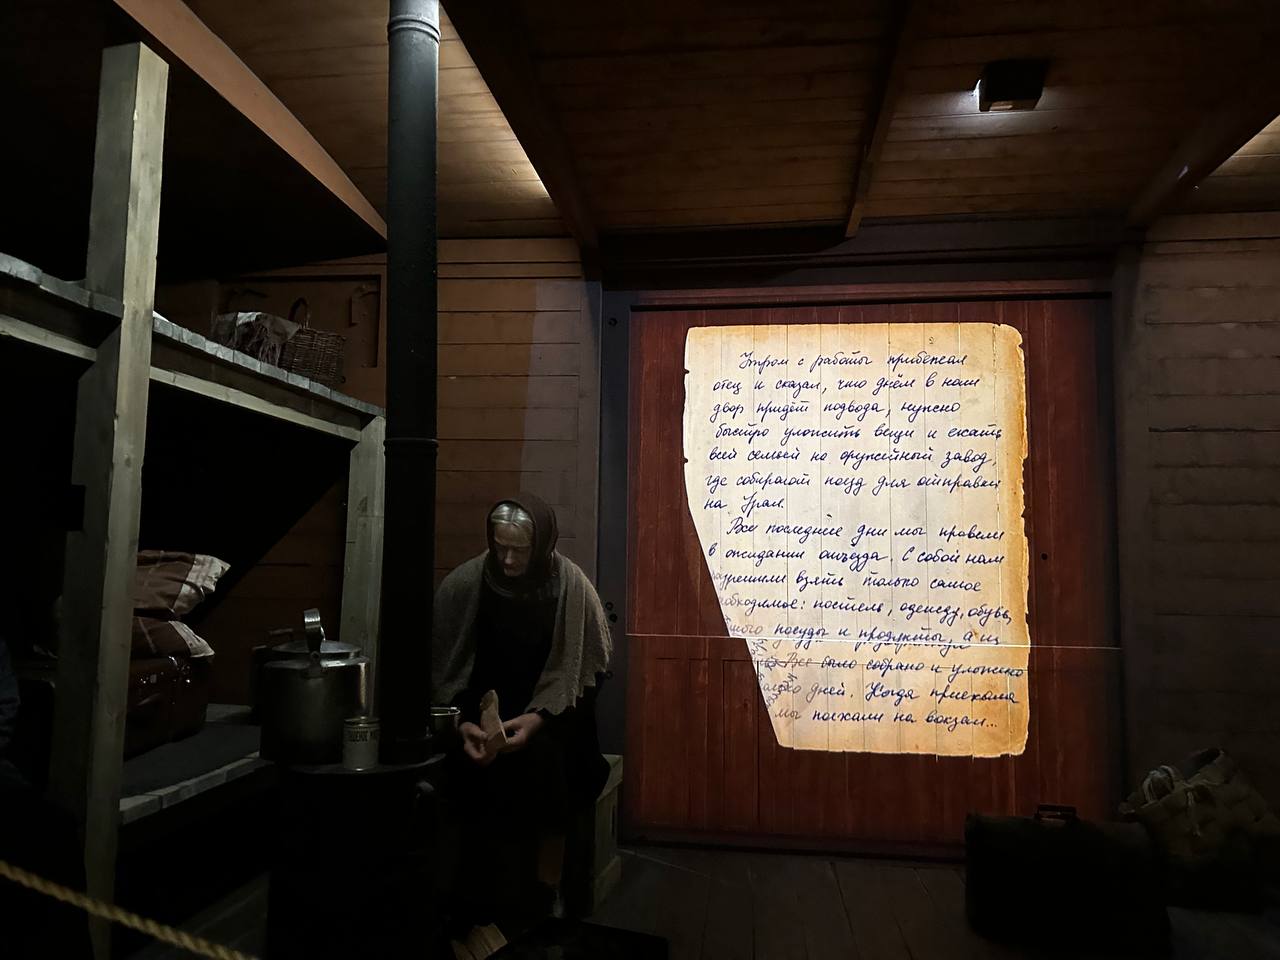 Утром с работы прибежал
отец и сказал, что днём в наш
двор придёт подвода, нужно
быстро уложить вещи и ехать
всей семьёй на оружейный завод,
где собирают поезд для отправки
на Урал.
Все последние дни мы провели
в ожидании отъезда. С собой нам
разрешили взять только самое
необходимое: постель, одежду, обувь,
посуды и продукты, а из
Все было собрано и уложено
дней. Когда приехала
мы поехали на вокзал...